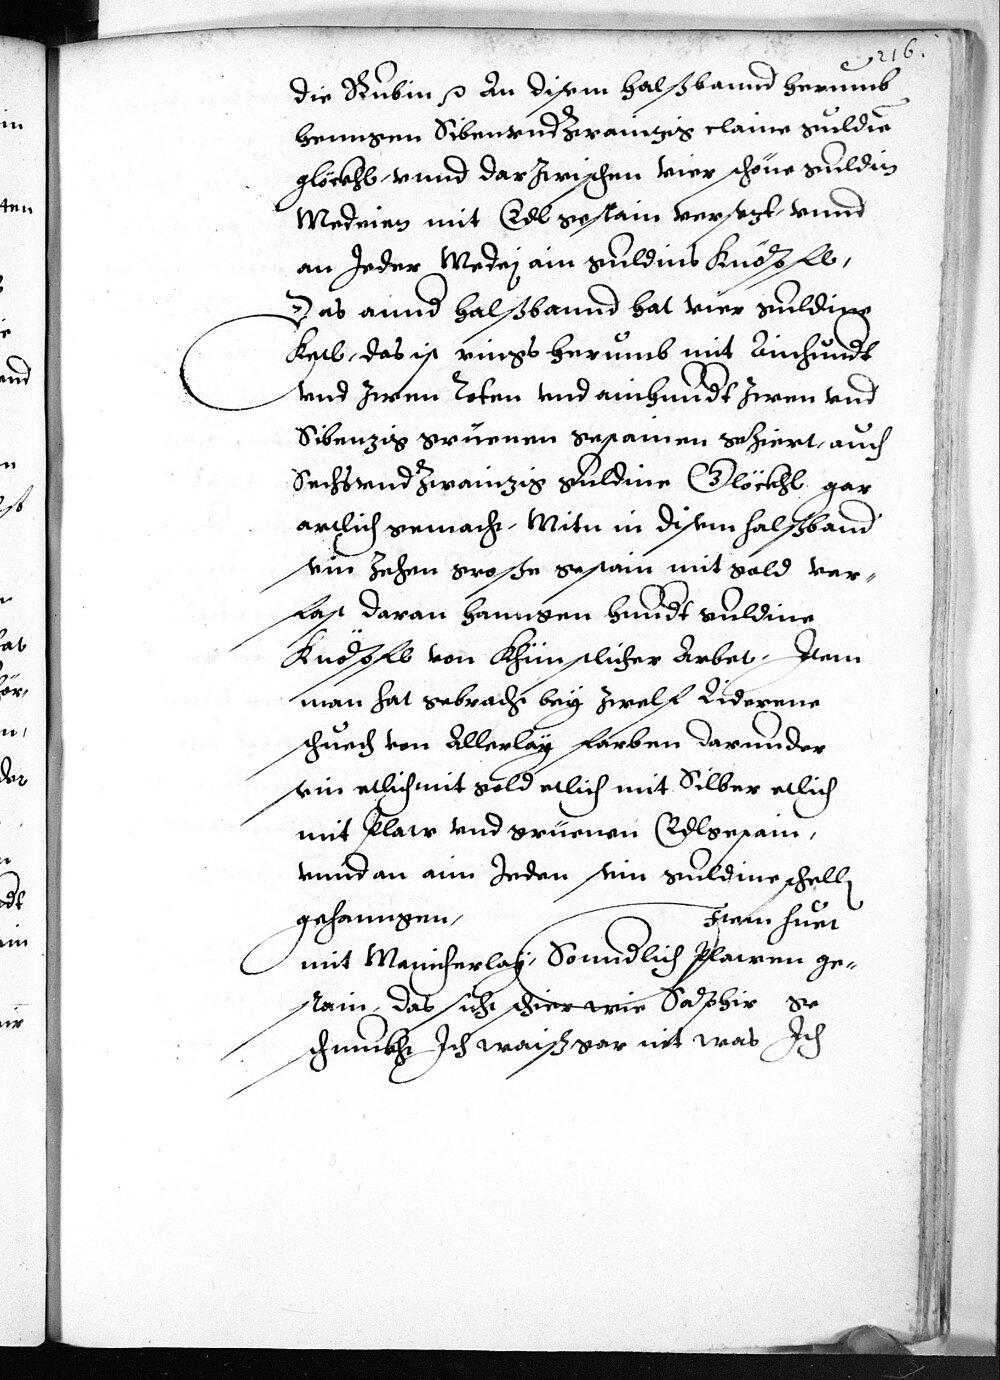 216.
die Rubin p An disem halßbannd herumb
henngen Sibenundzwainzig claine guldie
glöckhl, unnd darzwischen vier schöne guldin
Medeien mit Edl gestain versezt, unnd
an Jeder Medej ain guldins Knöpfle,
Das annd halßbannd hat vier guldine
Ketl, das ist rings herumb mit Ainhundt
und zwen Roten und ainhundt zwen und
Sibenzig grüenen gestainen geziert, auch
Sechsundzwainzig guldine Glöckhl gar
artlich gemacht, Mitn in disem halßband
sein zehen grosse gestain mit gold ver„
fast daran hanngen hundt guldine
Knöpfle von Khünstlicher Arbet, Item
man hat gebracht bey zwelf Liderene
schuech von Allerlay farben darunder
sein etlich mit gold etlich mit Silber etlich
mit Plaw und grüenen Edlgestain,
unnd an aim Jeden sein guldine schelln
gehanngen, Item huet
mit Manicherlay, Sonndlich Plawen ge„
stain, das sicht schier wie Saphir ge
schmukht Ich waiß gar nit was Ich